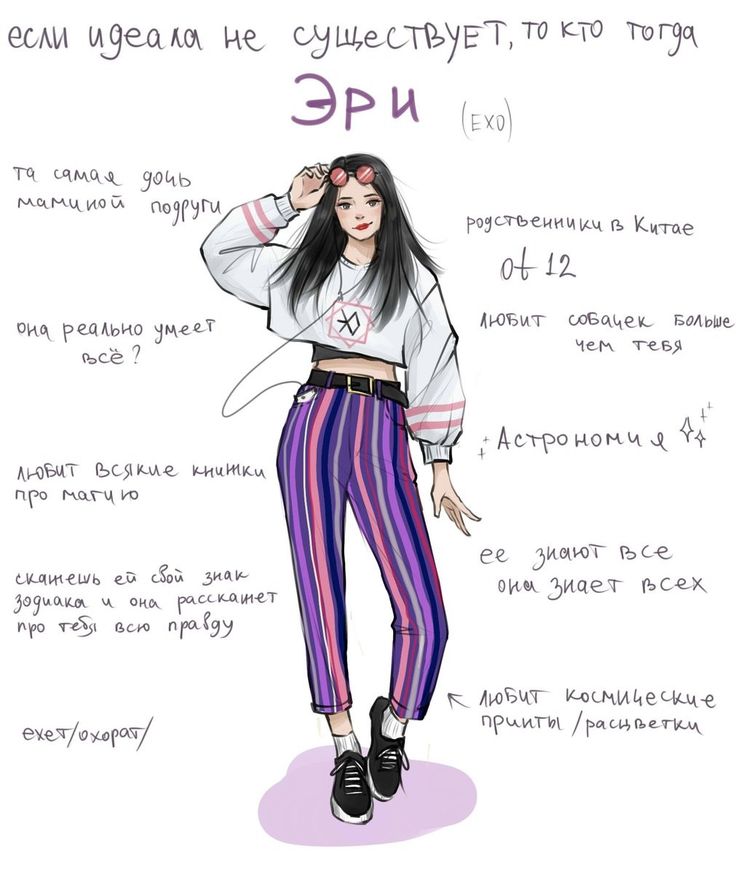 если идеала не существует, то кто тогда
Эри (EXO)
та самая дочь
маминой подруги
родственники в Китае
of 12
она реально умеет
всё?
любит собачек больше
чем тебя
Астрономия
любит всякие книжки
про магию
скажешь ей свой знак
зодиака и она расскажет
про тебя всю правду
ее знают все
она знает всех
любит космические
принты / расцветки
ехет/охорат/